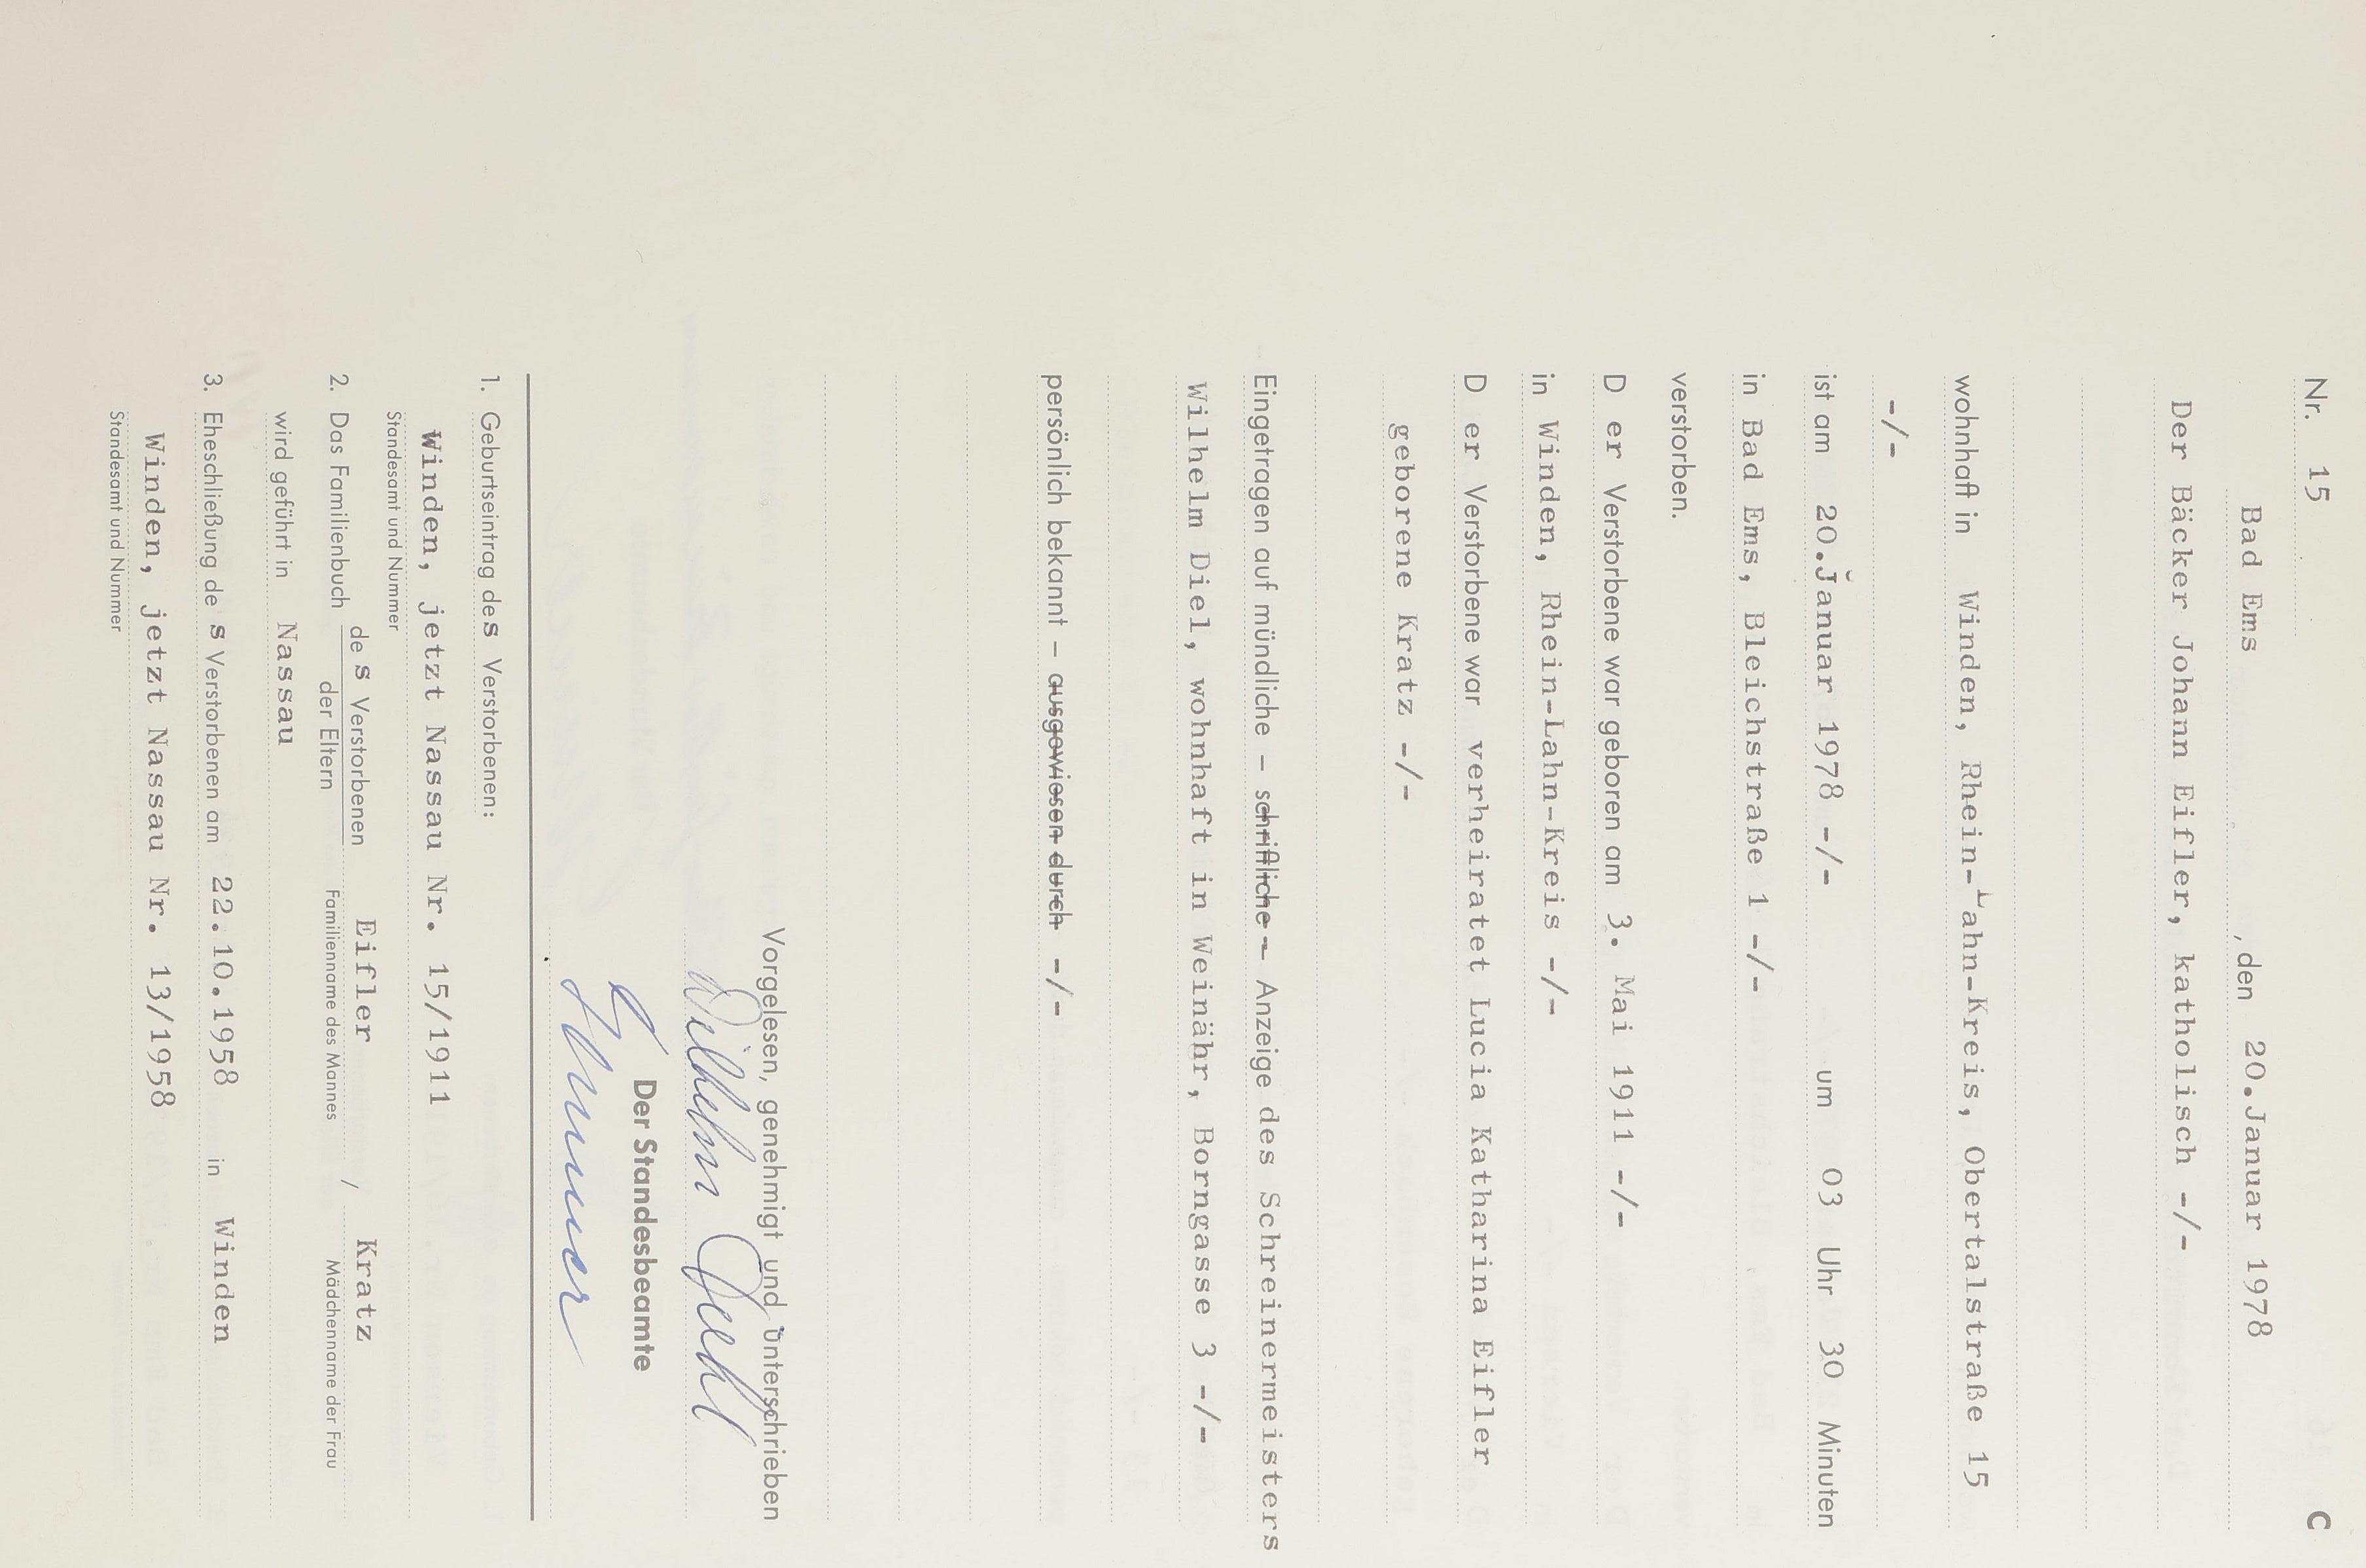 Nr. 15 C
Bad Ems , den 20.Januar 1978
Der Bäcker Johann Eifler, katholisch -/-
wohnhaft in Winden, Rhein-Lahn-Kreis, Obertalstraße 15
-/-
ist am 20.Januar 1978 -/- um 03 Uhr 30 Minuten
in Bad Ems, Bleichstraße 1 -/-
verstorben.
D er Verstorbene war geboren am 3. Mai 1911 -/-
in Winden, Rhein-Lahn-Kreis -/-
D er Verstorbene war verheiratet Lucia Katharina Eifler
geborene Kratz -/-
Eingetragen auf mündliche – schriftliche – Anzeige des Schreinermeisters
Wilhelm Diel, wohnhaft in Weinähr, Borngasse 3 -/-
persönlich bekannt – ausgewiesen durch -/-
Vorgelesen, genehmigt und unterschrieben
Wilhelm Diehl
Der Standesbeamte
1. Geburtseintrag des Verstorbenen:
Winden, jetzt Nassau Nr. 15/1911
Standesamt und Nummer
2. Das Familienbuch de s Verstorbenen Eifler / Kratz
der Eltern Familienname des Mannes Mädchenname der Frau
wird geführt in Nassau
3. Eheschließung de s Verstorbenen am 22.10.1958 in Winden
Winden, jetzt Nassau Nr. 13/1958
Standesamt und Nummer